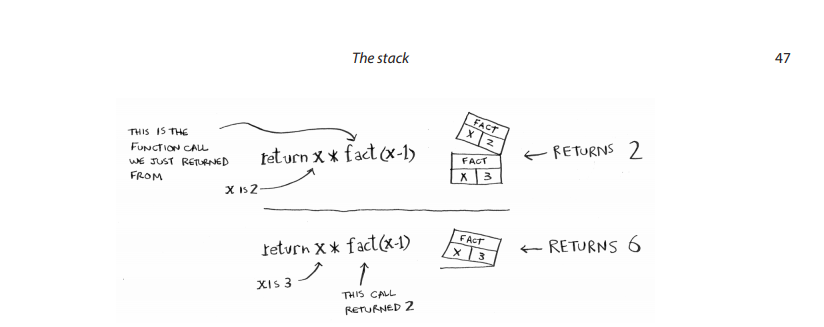 The stack 47
THIS IS THE
FUNCTION CALL
WE JUST RETURNED
FROM
return x * fact(x-1)
X IS 2
FACT
X 2
FACT
X 3
← RETURNS 2
return x * fact(x-1)
X IS 3
THIS CALL
RETURNED 2
FACT
X 3
← RETURNS 6